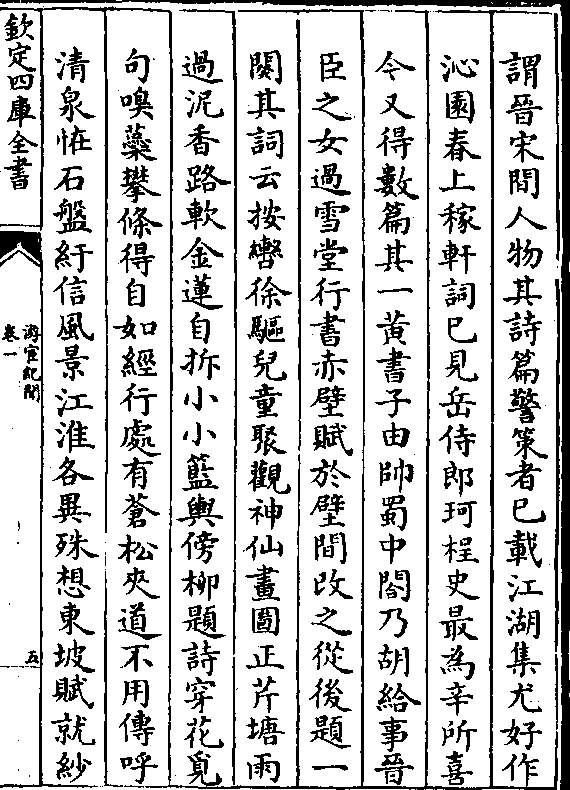 謂晉宋間人物其詩篇警策者已載江湖集尤好作
沁園春上稼軒詞已見岳侍郎珂桯史最為辛所喜
今又得數篇其一黃書子由帥蜀中閤乃胡給事晉
臣之女過雪堂行書赤壁賦於壁間改之從後題一
闋其詞云按轡徐驅兒童聚觀神仙畫圖正芹塘雨
過泥香路軟金蓮自拆小小籃輿傍柳題詩穿花覓
句嗅蘂攀條得自如經行處有蒼松夾道不用傳呼
清泉怪石盤紆信風景江淮各異殊想東坡賦就紗
欽定四庫全書
游宦紀聞
卷一
五